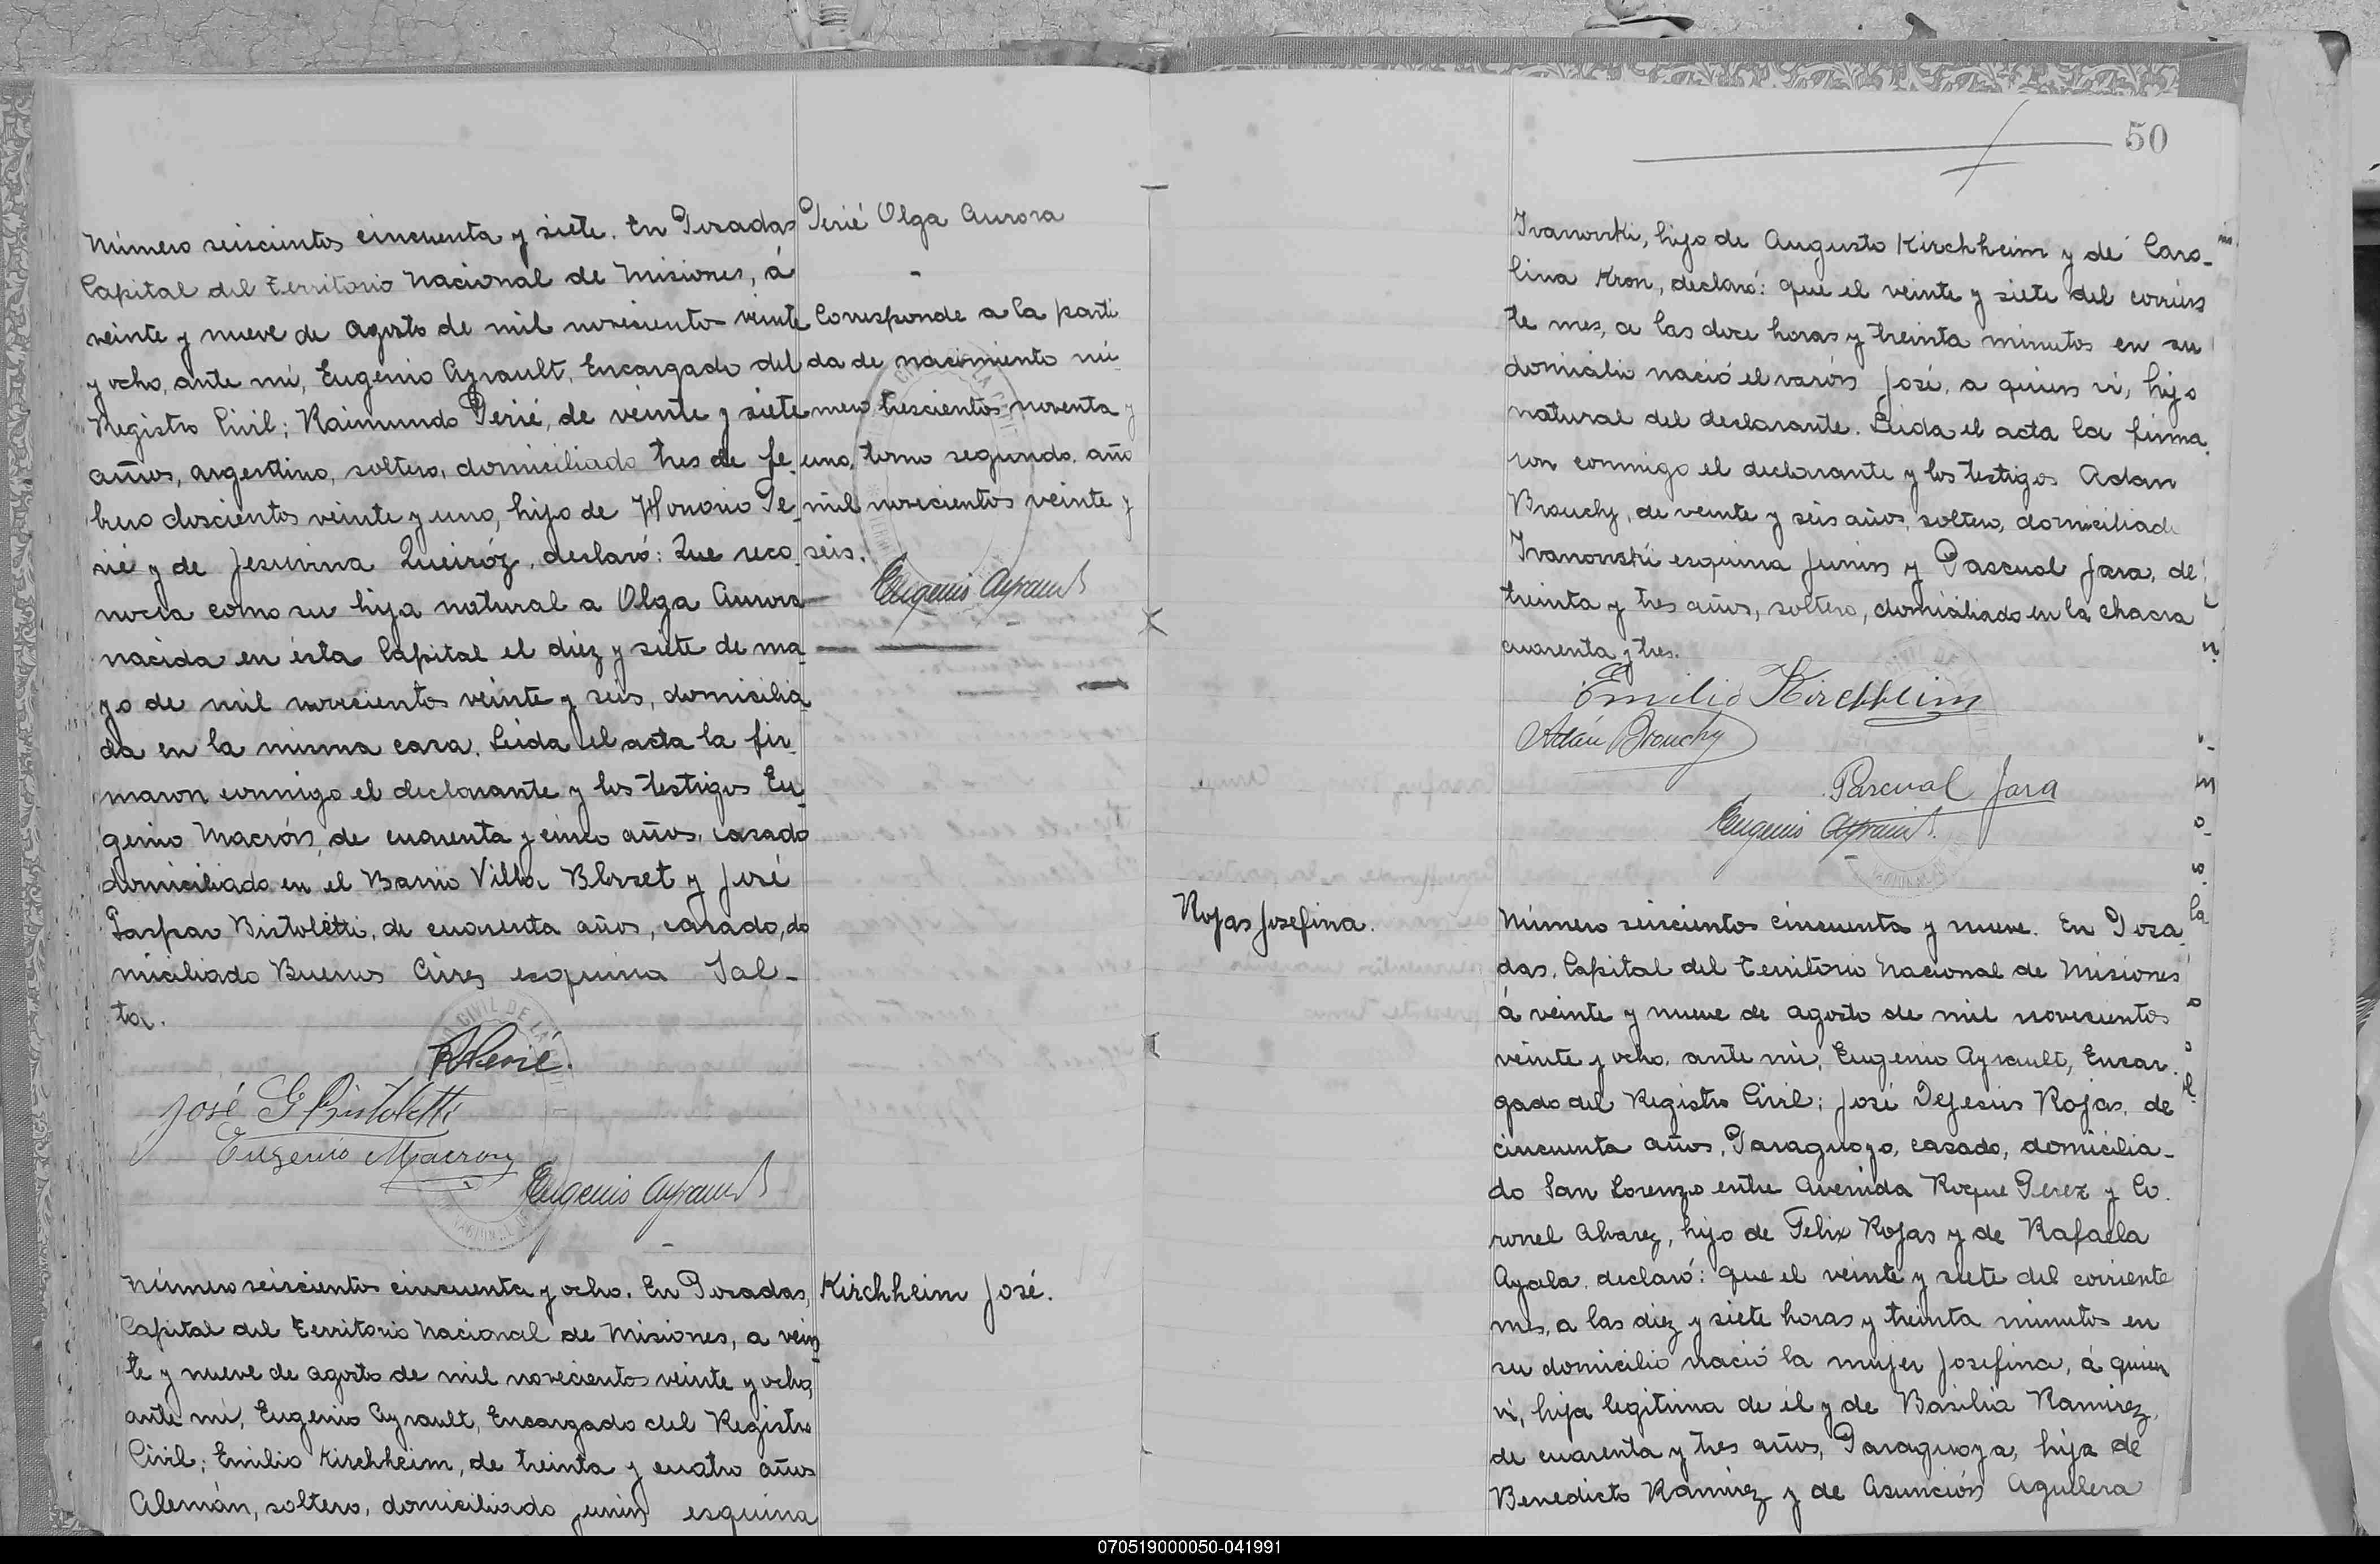 Número seiscientos cincuenta y siete. En Posadas
Capital del Territorio Nacional de Misiones, á
veinte y nueve de Agosto de mil novecientos veinte
y ocho, ante mí, Eugenio Ayrault, Encargado del
Registro Civil; Raimundo Perié, de veinte y siete
años, argentino, soltero, domiciliado tres de fe-
brero doscientos veinte y uno, hijo de Honorio Pe-
rié y de Jesuvina Queiróz, declaró: Que reco-
nocía como su hija natural a Olga Aurora
nacida en ésta Capital el diéz y siete de ma-
yo de mil novecientos veinte y seis, domicilia-
da en la misma casa. Leida el acta la fir-
maron conmigo el declarante y los testigos Eu-
genio Macrón, de cuarenta y cinco años, casado
domiciliado en el Barrio Villa Blosset y José
Gaspar Bistoletti, de cuarenta años, casado, do
miciliado Buenos Aires esquina Sal-
ta.
RPerié.
José G Bistoletti
Eugenio Macron
Eugenio Ayrault
Perié Olga Aurora
Corresponde a la parti
da de nacimiento nú-
mero trescientos noventa y
uno, tomo segundo, año
mil novecientos veinte y
seis.
Eugenio Ayrault
Número seiscientos cincuenta y ocho. En Posadas,
Capital del Territorio Nacional de Misiones, a vein-
te y nueve de Agosto de mil novecientos veinte y ocho,
ante mí, Eugenio Ayrault, Encargado del Registro
Civil; Emilio Kirchheim, de treinta y cuatro años
Alemán, soltero, domiciliado Junin esquina
Kirchheim José.
50
Ivanovski, hijo de Augusto Kirchheim y de Caro-
lina Kron, declaró: que el veinte y siete del corrien
te mes, a las doce horas y treinta minutos en su
domicilio nació el varón José, a quien ví, hijo
natural del declarante. Leida el acta la firma
ron conmigo el declarante y los testigos Adan
Brouchy, de veinte y seis años, soltero, domiciliado
Ivanovski esquina Junin y Pascual Jara, de
treinta y tres años, soltero, domiciliado en la chacra
cuarenta y tres.
Emilio Kirchheim
Adán Brouchy
Pascual Jara
Eugenio Ayrault
Rojas Josefina.
Número seiscientos cincuenta y nueve. En Posa-
das, Capital del Territorio Nacional de Misiones
á veinte y nueve de Agosto de mil novecientos
veinte y ocho, ante mí, Eugenio Ayrault, Encar-
gado del Registro Civil; José DeJesús Rojas, de
cincuenta años, Paraguayo, casado, domicilia-
do San Lorenzo entre Avenida Roque Perez y Co-
ronel Alvarez, hijo de Felix Rojas y de Rafaela
Ayala, declaró: que el veinte y siete del corriente
mes, a las diez y siete horas y treinta minutos en
su domicilio nació la mujer Josefina, á quien
ví, hija legitima de él y de Basilia Ramirez,
de cuarenta y tres años, Paraguaya, hija de
Benedicto Ramirez y de Asunción Aguilera
070519000050-041991